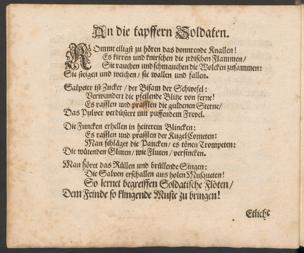 An die tapffern Soldaten.
KOmmt eiligst zu hören das donnrende Knallen!
Es kirren und knirschen die irdischen Flammen/
Sie rauchen und schmauchen die Wolcken zusammen:
Sie steigen und weichen/ sie wallen und fallen.
Salpeter ist Zucker/ der Bisam der Schwefel:
Verwandert die pfeilende Blitze von ferne!
Es rasslen und prasslen die guldenen Sterne/
Das Pulver verdüstert mit puffendem Frevel.
Die Funcken erhellen in heiterem Blincken:
Es rasslen und prasslen der Kugel Cometen:
Man schläget die Paucken/ es tönen Trompeten:
Die wütenden Gluten/ wie Fluten/ versincken.
Man höret das Rüllen und brüllende Singen:
Die Salven erschallen aus holen Musqueten!
So lernet begreiffen Soldatische Flöten/
Dem Feinde so klingende Music zu bringen!
Etliche